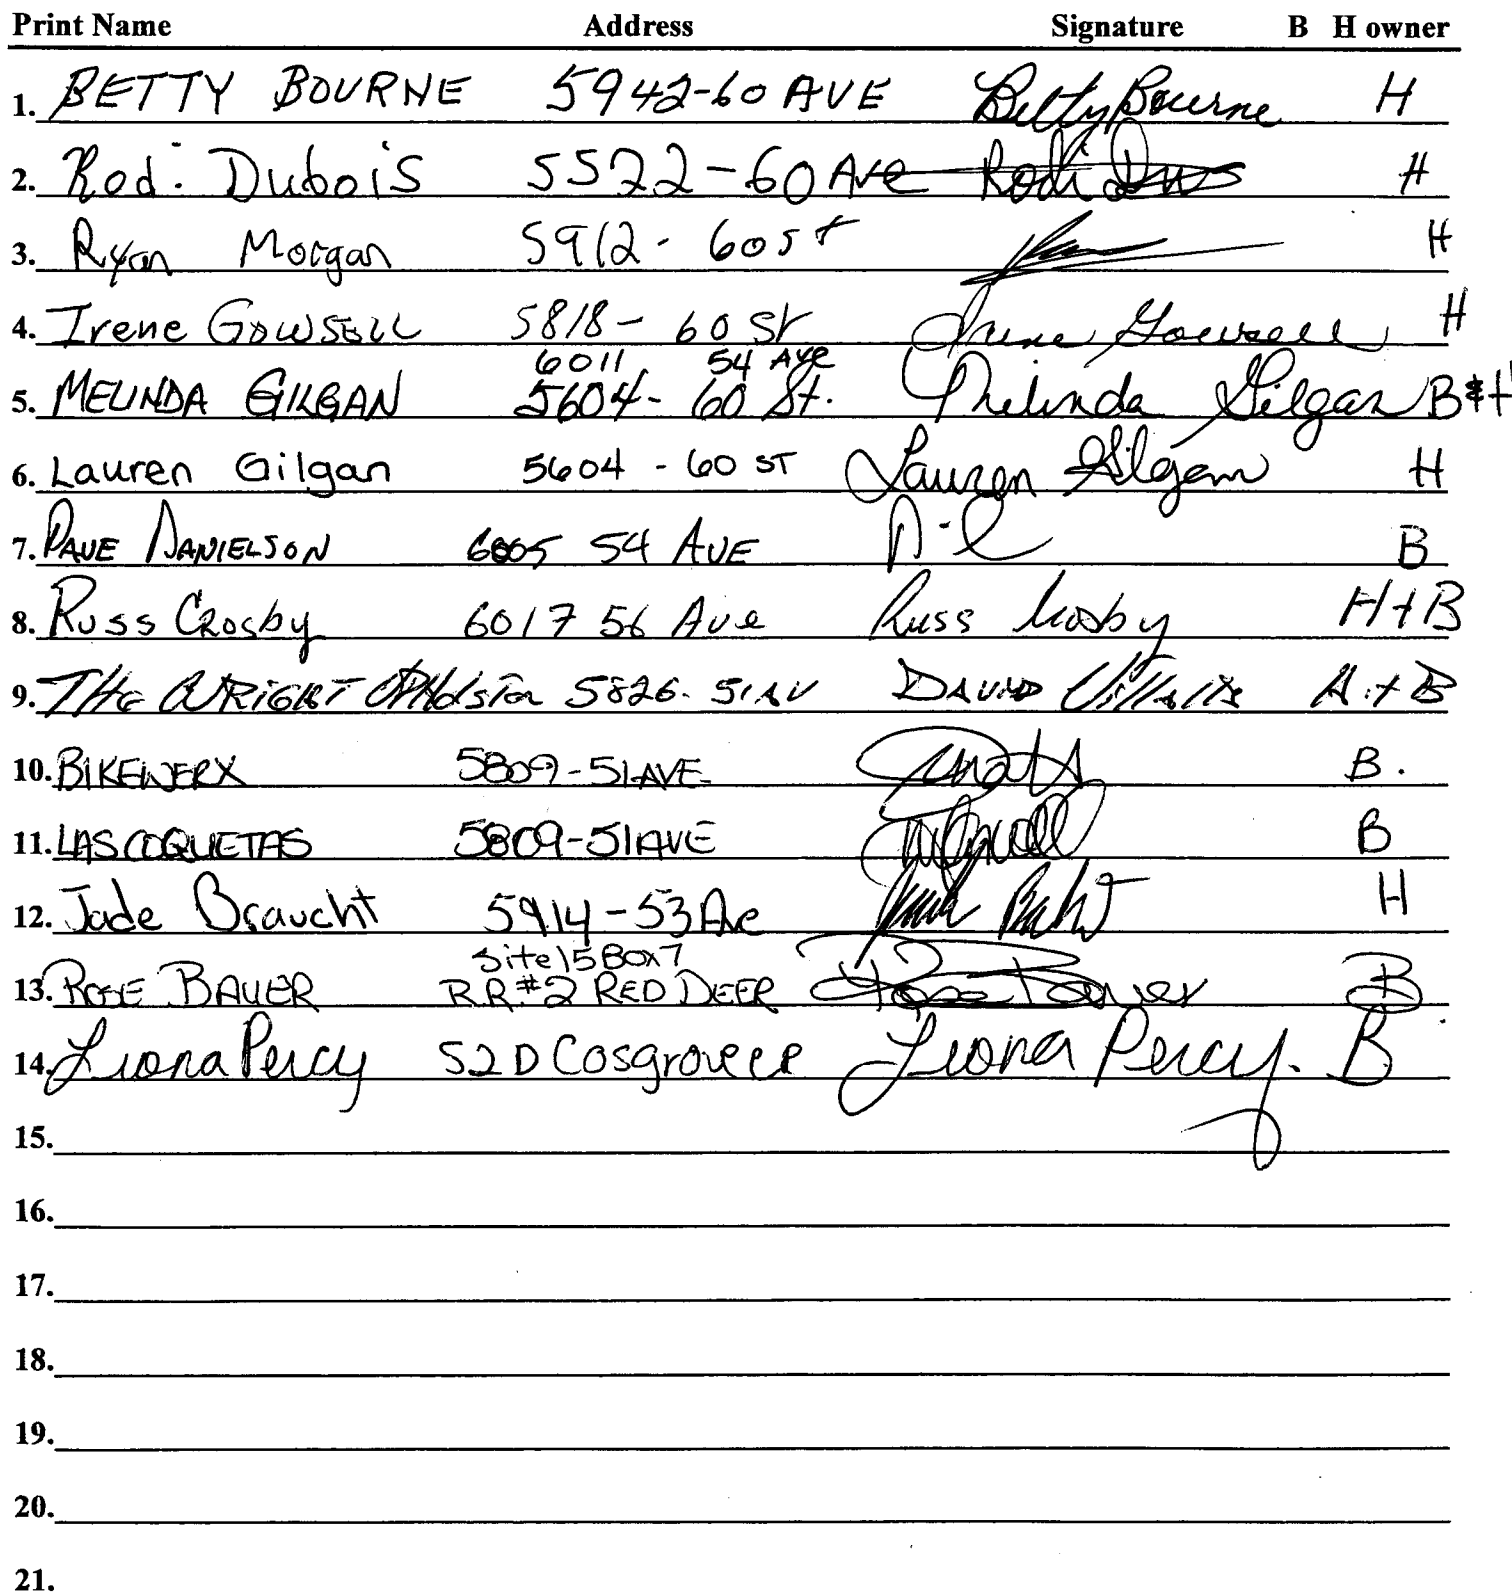 Print Name Address Signature B H owner
1. BETTY BOURNE 5942-60 AVE Betty Bourne H
2. Rodi Dubois 5522-60 Ave Rodi H
3. Ryan Morgan 5912-60 st H
4. Irene GOWSELL 5818-60 St Irene Gowsell H
6011 54 Ave
5. MELINDA GILGAN 5604-60 St. Melinda Gilgan B&H
6. Lauren Gilgan 5604-60 ST Lauren Gilgan H
7. DAVE DANIELSON 6005 54 AVE B
8. Russ Crosby 6017 56 Ave Russ Crosby H+B
9. THE WRIGHT 5826-51 AV DAVID H+B
10. BIKEWERX 5809-51 AVE. B.
11. LAS COQUETAS 5809-51 AVE B
12. Jade Braucht 5914-53 Ave H
Site 15 Box 7
13. ROSE BAUER R.R.#2 RED DEER Rose Bauer B
14. Liona Percy 52 D Cosgrove Liona Percy. B
15.
16.
17.
18.
19.
20.
21.